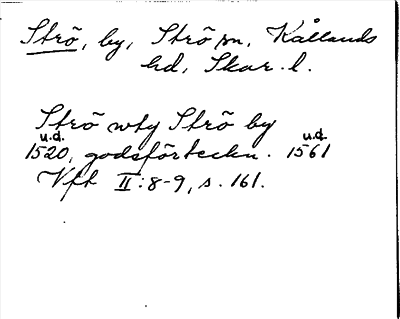 Strö, by, Strö sn, Kållands
hd, Skar. l.
Strö wty Strö by
u.d. u.d.
1520, godsförteckn. 1561
Vft II:8-9, s. 161.